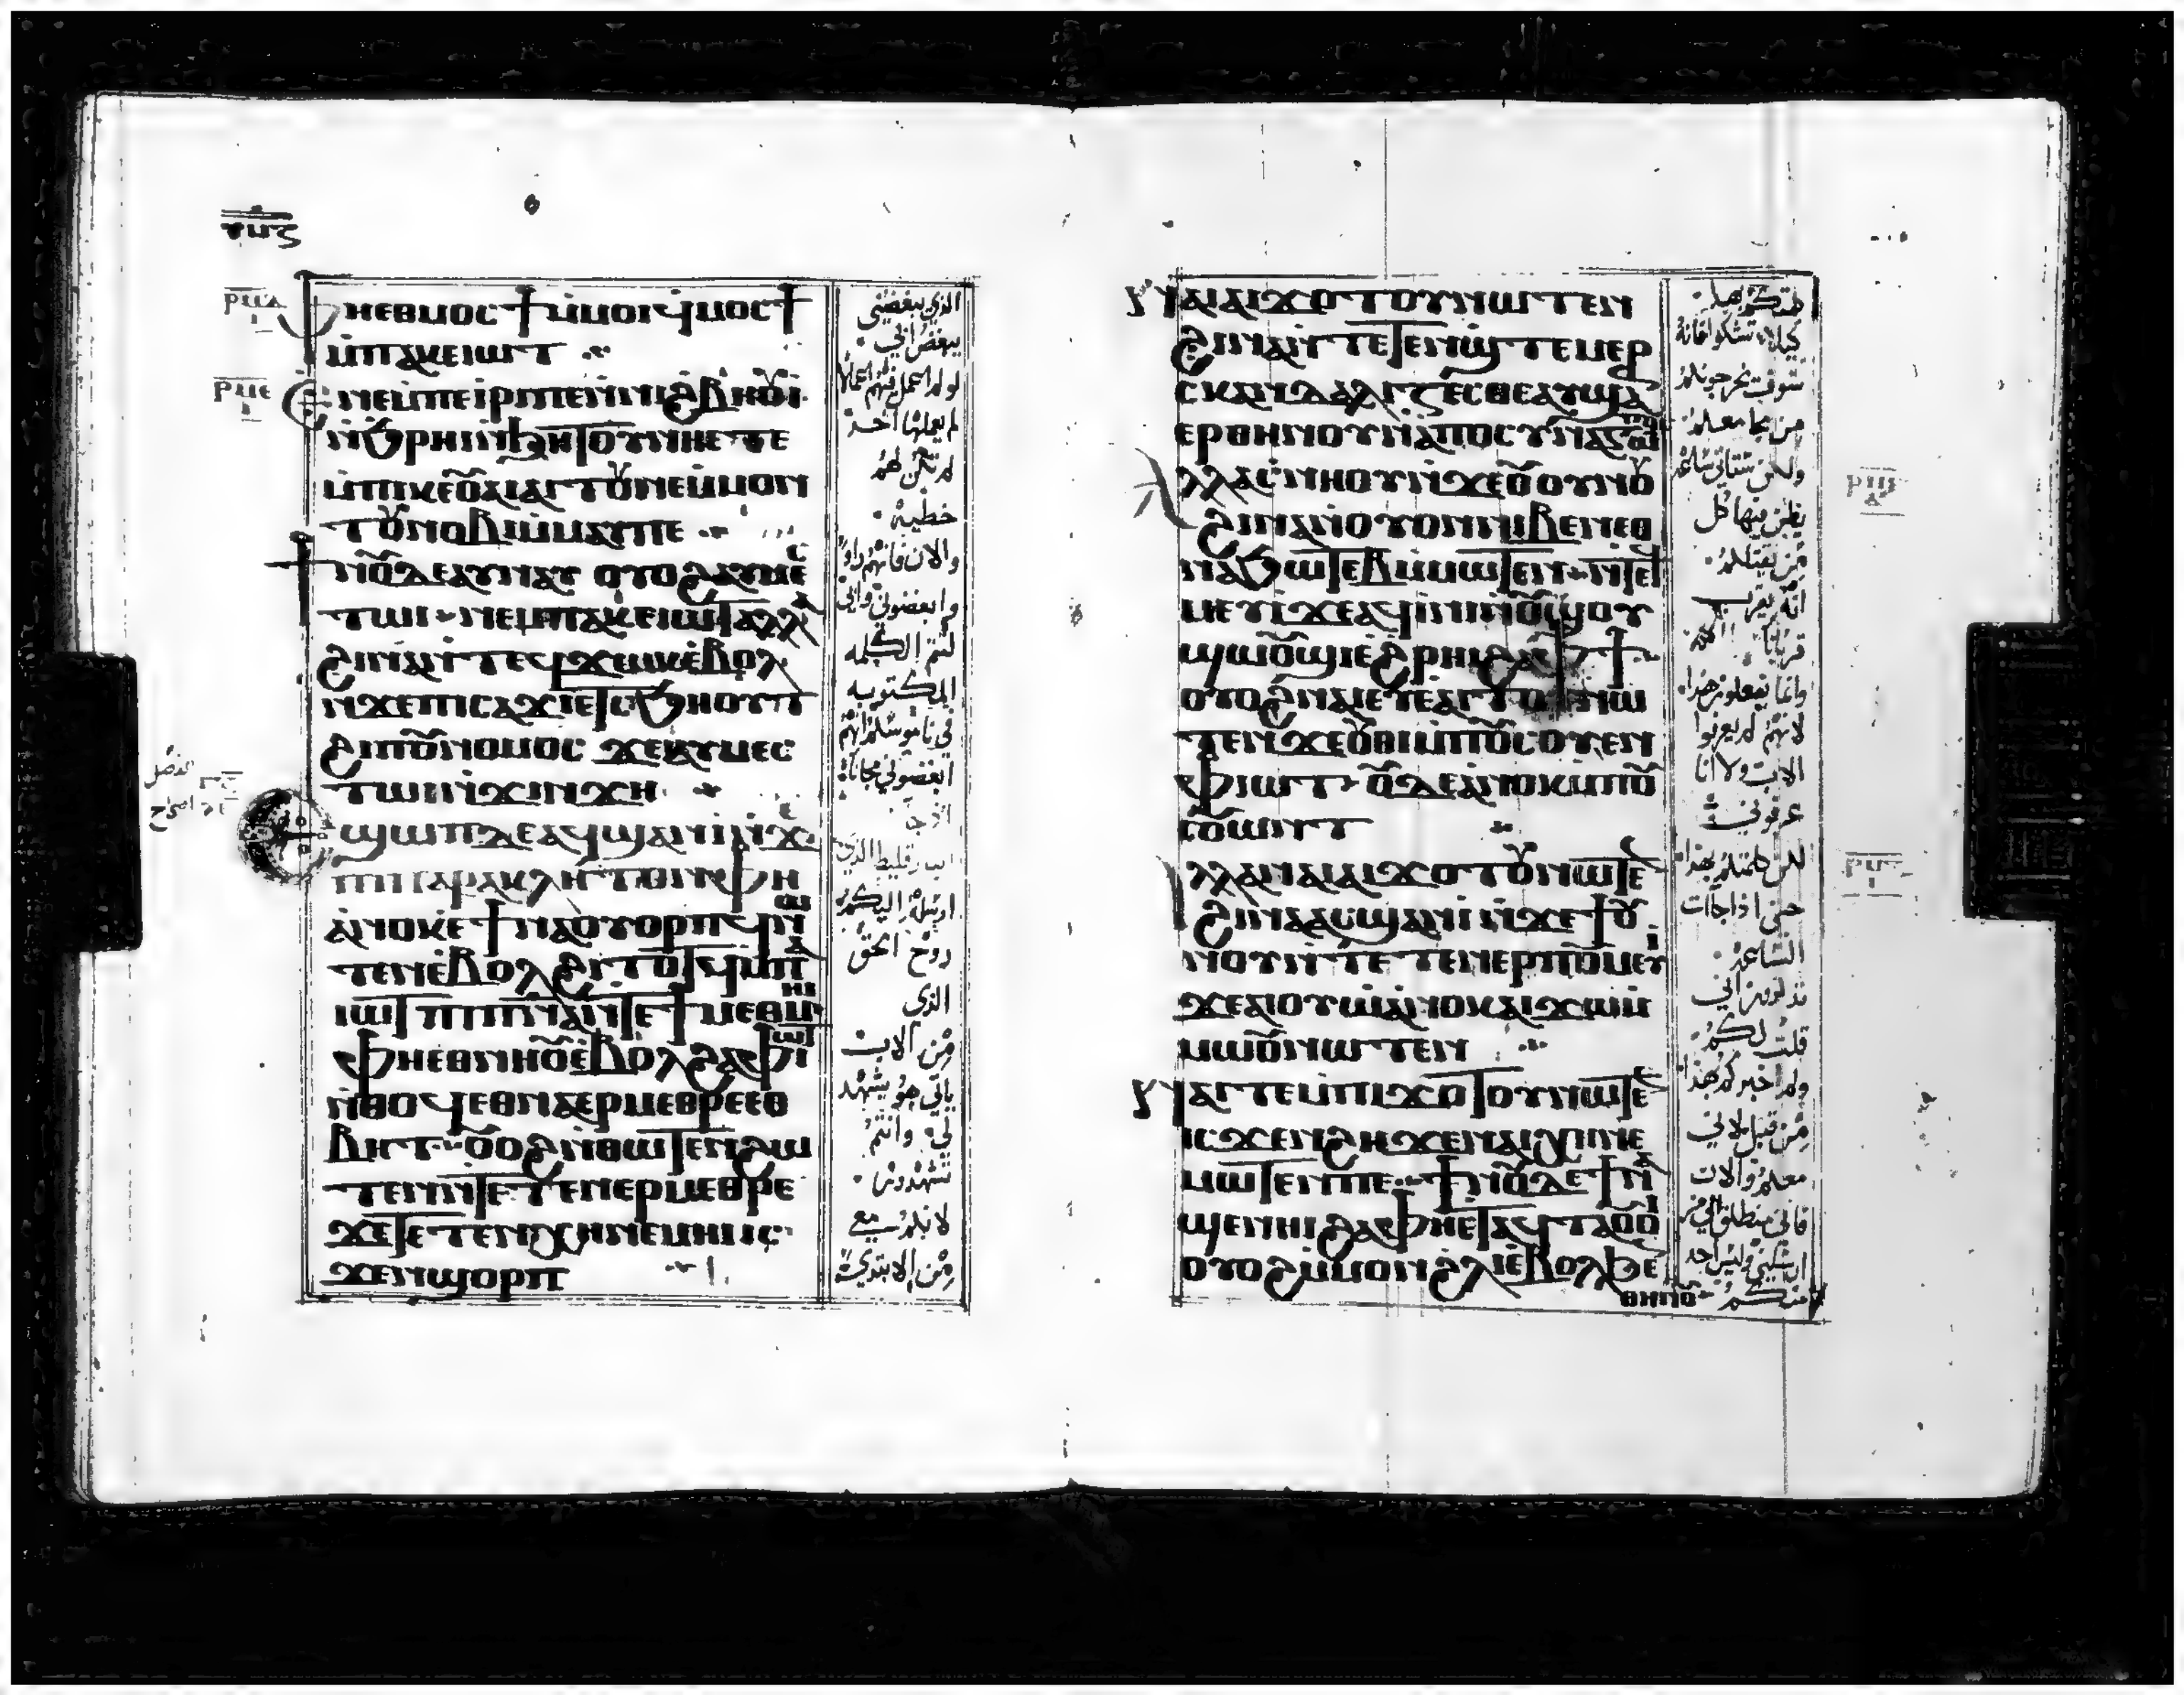 ⲩⲙⲋ
ⲫⲏⲉⲑⲙⲟⲥϯⲙ̀ⲙⲟⲓϥⲙⲟⲥϯ
ⲙ̀ⲡⲁⲕⲉⲓⲱⲧ
ⲉⲛⲉⲙ̀ⲡⲉⲓⲣⲡⲉⲛⲛⲓϩⲃⲏⲟⲩⲓ
ⲛ̀ϧⲣⲏⲓⲛ̀ϧⲏⲧⲟⲩⲛⲏⲉⲧⲉ
ⲙ̀ⲡⲓⲕⲉⲟⲩⲁⲓⲁⲓⲧⲟⲩⲛⲉⲙ̀ⲙⲟⲛ
ⲧⲟⲩⲛⲟⲃⲓⲙ̀ⲙⲁⲩⲡⲉ
ϯⲛⲟⲩⲇⲉⲁⲩⲛⲁⲩ ⲟⲩⲟϩⲁⲩⲙⲉⲥ
ⲧⲱⲓ ⲛⲉⲙⲡⲁⲕⲉⲓⲱⲧⲁⲗⲗⲁ
ϩⲓⲛⲁⲛ̀ⲧⲉϥϫⲱⲕⲉ̀ⲃⲟⲗ
ⲛ̀ϫⲉⲡⲓⲥⲁϫⲓⲉⲧⲥϧⲏⲟⲩⲧ
ϩⲓⲡⲟⲩⲛⲟⲙⲟⲥ ϫⲉⲁⲩⲙⲉⲥ
ⲧⲱⲓⲛ̀ϫⲓⲛϫⲏ
ⲉϣⲱⲡⲇⲉⲁϥϣⲁⲛⲓ̀ⲛ̀ϫⲉ
ⲡⲓⲡⲁⲣⲁⲕⲗⲏⲧⲟⲛⲫⲏ
ⲁⲛⲟⲕⲉϯⲛⲁⲟⲩⲟⲣⲡϥⲛⲱ
ⲧⲉⲛⲉ̀ⲃⲟⲗϩⲓⲧⲟⲧϥⲙ̀ⲡⲁ
ⲓⲱⲧ ⲡⲓⲡⲛⲁⲛ̀ⲧⲉϯⲙⲉⲑⲙⲏⲓ
ⲫⲏⲉⲑⲛⲏⲟⲩⲉ̀ⲃⲟⲗϩⲁⲫⲓⲱⲧ
ⲛ̀ⲑⲟϥⲉⲑⲛⲁⲉⲣⲙⲉⲑⲣⲉⲉⲑ
ⲃⲏⲧ ⲟⲩⲟϩⲛ̀ⲑⲱⲧⲉⲛϩⲱ
ⲧⲉⲛⲛ̀ⲧⲉⲧⲉⲛⲉⲣⲙⲉⲑⲣⲉ
ϫⲉⲧⲉⲧⲉⲛⲭⲏⲛⲉⲙⲏⲓⲓⲥ
ϫⲉⲛϣⲟⲣⲡ
الذي يبغضني
يبغض ابي
لم يعملها اخر
لم تكن لهم
خطية
والان فانهم راوا
وابغضوني وابي
لتتم الكلمة
المكتوبة
في ناموسهم انهم
ابغضوني مجانا
روح الحق
الذي
من الاب
ياتي هو يشهد
لي وانتم
تشهدون
لانكم معي
من الابتدي
ⲛⲁⲓⲁⲓϫⲟⲧⲟⲩⲛⲱⲧⲉⲛ
ϩⲓⲛⲁⲛ̀ⲧⲉⲧⲉⲛϣⲧⲉⲙⲉⲣ
ⲥⲕⲁⲛⲇⲁⲗⲓⲍⲉⲥⲑⲉⲁⲩϣⲁ
ⲉⲣⲑⲏⲛⲟⲩⲛ̀ⲁⲡⲟⲥⲩⲛⲁⲅⲱⲅⲟⲥ
ⲁⲗⲗⲁⲥⲛⲏⲟⲩⲛ̀ϫⲉⲟⲩⲟⲩⲛⲟⲩ
ϩⲓⲛⲁⲛ̀ⲟⲩⲟⲛⲛⲓⲃⲉⲛⲉⲑ
ⲛⲁϧⲱⲧⲉⲃⲙ̀ⲙⲱⲧⲉⲛ ⲛ̀ⲧⲉϥ
ⲙⲉⲩⲓ̀ϫⲉⲁϥⲓⲛⲓⲛ̀ⲟⲩϣⲟⲩ
ϣⲱⲟⲩϣⲓⲉ̀ϩⲣⲏⲓϩⲁⲫϯ
ⲟⲩⲟϩⲛⲁⲓⲉⲩⲉ̀ⲁⲓⲧⲟⲩⲛⲱ
ⲧⲉⲛϫⲉⲟⲩⲏⲓⲙ̀ⲡⲟⲩⲥⲟⲩⲉⲛ
ⲫⲓⲱⲧ ⲟⲩⲇⲉⲁⲛⲟⲕⲙ̀ⲡⲟⲩ
ⲥⲟⲩⲱⲛⲧ
ⲁⲗⲗⲁⲛⲁⲓⲁⲓϫⲟⲧⲟⲩⲛⲱⲧⲉⲛ
ϩⲓⲛⲁⲁⲥϣⲁⲛⲓ̀ⲛ̀ϫⲉϯⲟⲩ
ⲛⲟⲩⲛ̀ⲧⲉⲧⲉⲛⲉⲣⲡⲟⲩⲙⲉⲩⲓ̀
ϫⲉⲁⲓⲟⲩⲱⲁⲛⲟⲕⲁⲓϫⲱⲙ̀
ⲙⲱⲟⲩⲛⲱⲧⲉⲛ
ⲛⲁⲓⲇⲉⲙ̀ⲡⲓϫⲟⲧⲟⲩⲛⲱⲧⲉⲛ
ⲓⲥϫⲉⲛϩⲏϫⲉⲛⲁⲓⲭⲏⲛⲉ
ⲙⲱⲧⲉⲛⲡⲉ ϯⲛⲟⲩⲇⲉϯⲛⲁ
ϣⲉⲛⲏⲓϩⲁⲫⲏⲉⲧⲁϥⲧⲁⲟⲩⲟⲓ
ⲟⲩⲟϩⲙ̀ⲙⲟⲛϩⲗⲓⲉ̀ⲃⲟⲗϧⲉⲛ
ⲑⲏⲛⲟⲩ
كلمتكم بهذا
كيلا تشكوا فانه
سوف يخرجونكم
من مجامعكم
ولكن ستاتي ساعة
يظن فيها كل
من يقتلكم
انه يقرب
وانما يفعلون هذا
لانهم لم يعرفوا
الاب ولا انا
عرفوني
لكن كلمتكم بهذا
حتى اذا جات
الساعة
تذكرون اني
قلت لكم
ولم اخبركم بهذا
من قبل لاني
معكم والان
منكم